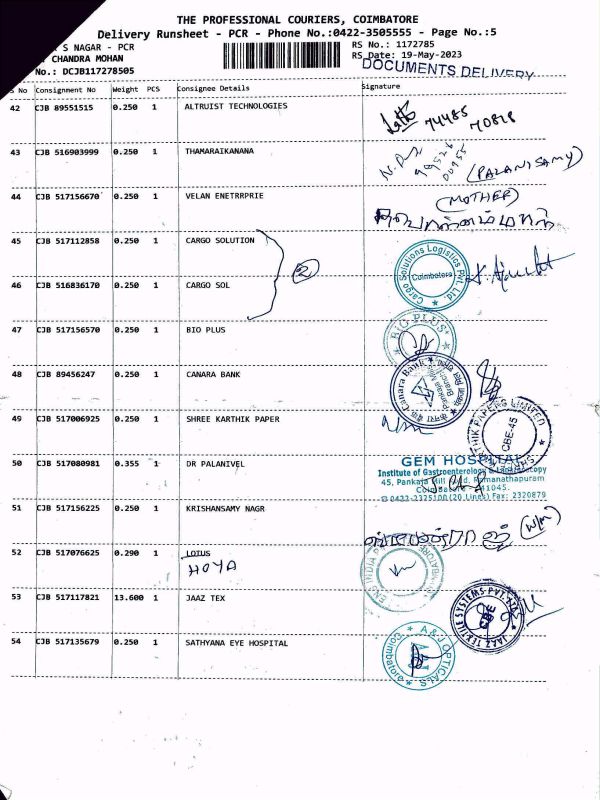 THE PROFESSIONAL COURIERS, COIMBATORE
Delivery Runsheet - PCR - Phone No.:0422-3505555 - Page No.:5
S NAGAR - PCR
RS No.: 1172785
CHANDRA MOHAN
RS Date: 19-May-2023
No.: DCJB117278505
DOCUMENTS DELIVERY
S No Consignment No Weight PCS Consignee Details Signature
42 CJB 89551515 0.250 1 ALTRUIST TECHNOLOGIES
74485
70828
43 CJB 516903999 0.250 1 THAMARAIKANANA
99526
00955
(PALANISAMY)
44 CJB 517156670 0.250 1 VELAN ENETRPRIE
(MOTHER)
45 CJB 517112858 0.250 1 CARGO SOLUTION
2
Cargo Solutions Logistics Pvt. Ltd.
Coimbatore
46 CJB 516836170 0.250 1 CARGO SOL
47 CJB 517156570 0.250 1 BIO PLUS
BIO PLUS
48 CJB 89456247 0.250 1 CANARA BANK
Canara Bank
49 CJB 517006925 0.250 1 SHREE KARTHIK PAPER
CBE-45
50 CJB 517080981 0.355 1 DR PALANIVEL
GEM HOSPITAL
Institute of Gastroenterology & Laparoscopy
45, Pankaja Mill Road, Ramanathapuram
Coimbatore - 641045.
0422-2325100 (20 Lines) Fax: 2320879
51 CJB 517156225 0.250 1 KRISHANSAMY NAGR
(W/M)
52 CJB 517076625 0.290 1 LOTUS
HOYA
53 CJB 517117821 13.600 1 JAAZ TEX
JAAZ TEXTILE SYSTEMS PVT. LTD.
CBE
54 CJB 517135679 0.250 1 SATHYANA EYE HOSPITAL
A&J OPTICALS
Coimbatore